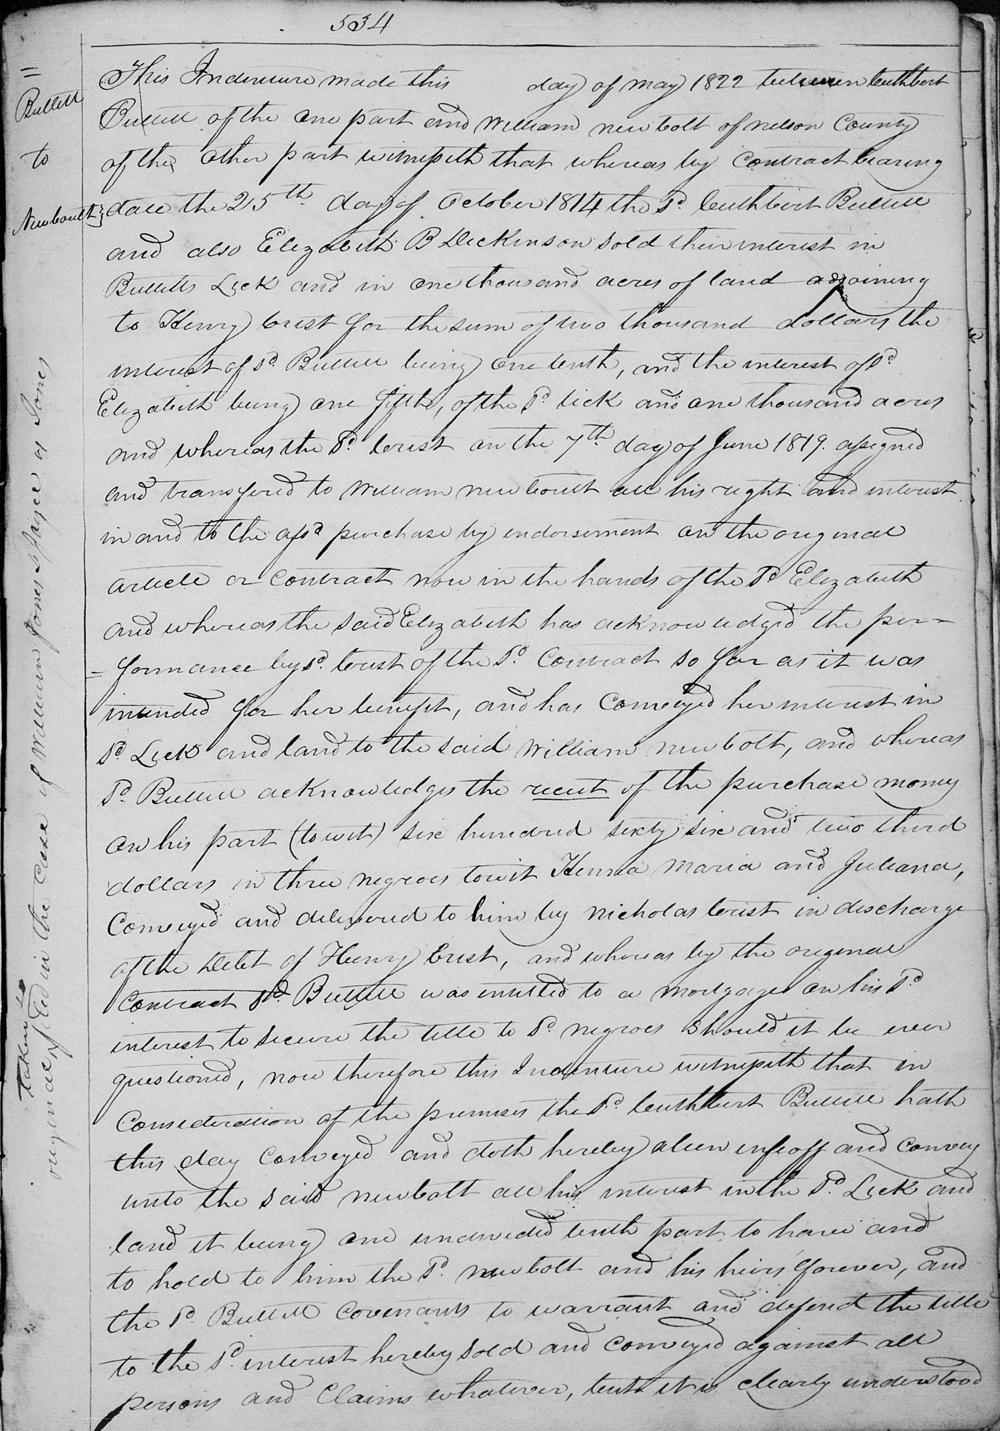 534
=
Bullitt
to
Newboult }
This Indenture made this day of may 1822 between Cuthbert
Bullitt of the one part and William newbolt of nelson County
of the other part witnesseth that whereas by Contract bearing
date the 25th day of October 1814 the sd. Cuthbert Bullitt
and also Elizabeth B Dickinson sold their interest in
Bullitts Lick and in one thousand acres of land adjoining
to Henry Crist for the sum of two thousand dollars the
interest of sd. Bullitt being one tenth, and the interest of sd.
Elizabeth being one fifth, of the sd. lick and one thousand acres
and whereas the sd. Crist on the 7th day of June 1819. assigned
and transfered to William newboult all his right and interest
in and to the afsd purchase by endorsement on the original
article or contract now in the hands of the sd Elizabeth
and whereas the said Elizabeth has acknowledged the per=
=formance by sd. Crist of the sd. Contract so far as it was
intended for her benefit, and has Conveyed her interest in
sd. Lick and land to the said William newbolt, and whereas
sd. Bullitt acknowledges the receit of the purchase money
on his part (to wit) six hundred sixty six and two third
dollars in three negroes towit Henna Maria and Juliana,
Conveyed and delivered to him by Nicholas Crist in discharge
of the Debt of Henry Crist, and whereas by the original
Contract sd. Bullitt was intitled to a mortgage on his sd.
interest to secure the title to sd. negroes should it be ever
questioned, now therefore this Indenture witnesseth that in
Consideration of the premises the sd. Cuthbert Bullitt hath
this day Conveyed and doth hereby alien infeoff and convey
unto the said newbolt all his interest in the sd. Lick and
land it being one undivided tenth part to have and
to hold to him the sd. newbolt and his heirs forever, and
the sd. Bullitt Covenants to warrant and defend the title
to the sd. interest hereby sold and conveyed against all
persons and Claims whatever, but it is clearly understood
original in the case of William Jones